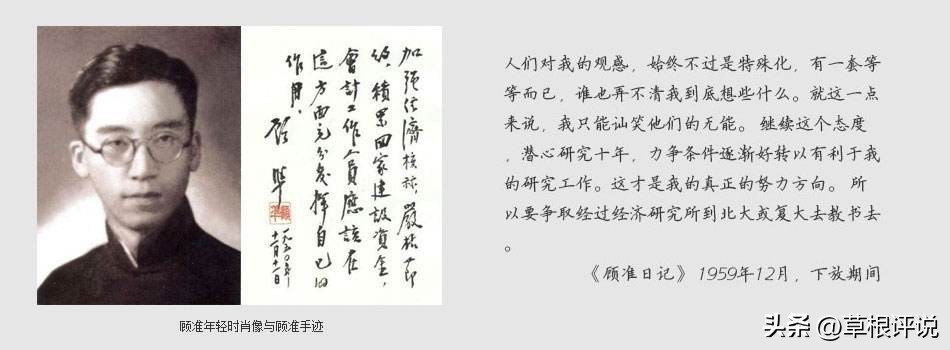 加强经濟核算,嚴格節
约,積累国家建設资金,
會計工作人員應該在
這方面充分發揮自己的
作用。顧準
十一月十一日
顾准年轻时肖像与顾准手迹
人们对我的观感,始终不过是特殊化,有一套等
等而已,谁也弄不清我到底想些什么。就这一点
来说,我只能讪笑他们的无能。 继续这个态度
,潜心研究十年,力争条件逐渐好转以有利于我
的研究工作。这才是我的真正的努力方向。 所
以要争取经过经济研究所到北大或复大去教书去
。
《 顾准日记》 1959年12月,下放期间
头条 @草根评说